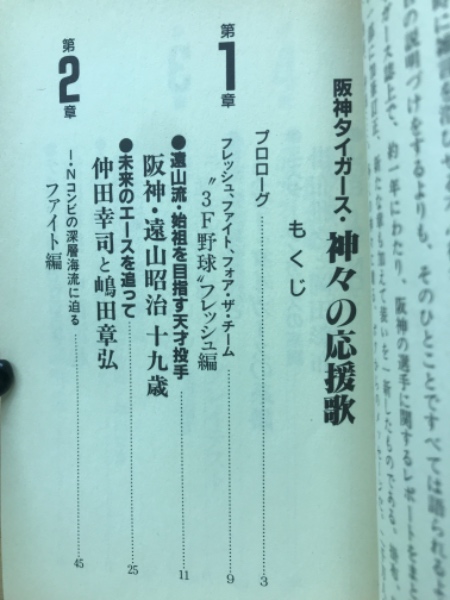 野に
の説明づけをするよりも、そのひとことですべては語られるよ
ガース誌上で、約一年にわたり、阪神の選手に関するレポートをまと
阪神タイガース・神々の応援歌
もくじ
プロローグ……3
第1章
フレッシュ、ファイト、フォア・ザ・チーム
〝3F野球〟フレッシュ編……9
●遠山流・始祖を目指す天才投手
阪神・遠山昭治 十九歳……11
●未来のエースを追って
仲田幸司と嶋田章弘……25
第2章
I・Nコンビの深層海流に迫る
ファイト編……45